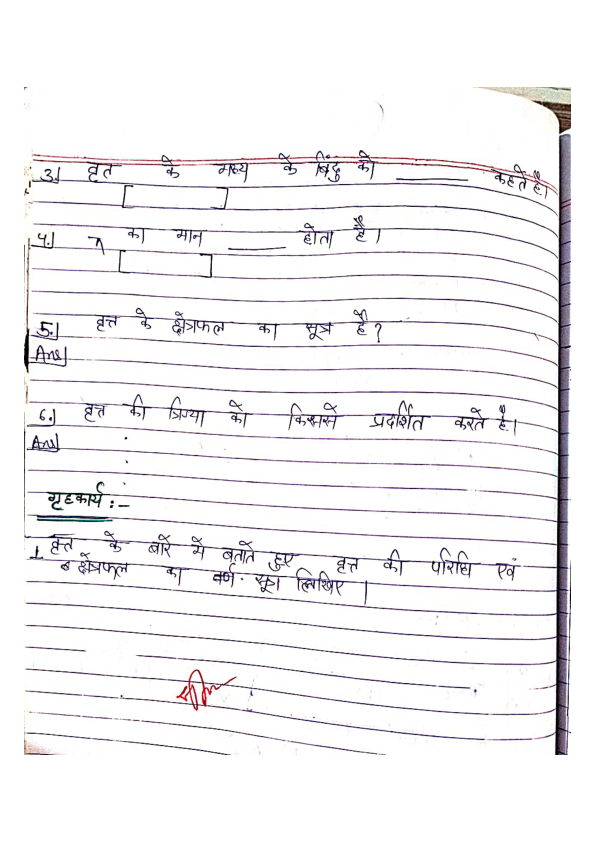 3.] वृत के मध्य के बिंदु को ______ कहते है।
4.] का मान ______ होता है।
5.] वृत्त के क्षेत्रफल का सूत्र है?
Ans]
6.] वृत्त की त्रिज्या को किससे प्रदर्शित करते है।
Ans]
गृहकार्य :-
1. वृत्त के बारे मे बताते हुए वृत्त की परिधि एवं
क्षेत्रफल का वर्ण सूत्र लिखिए।